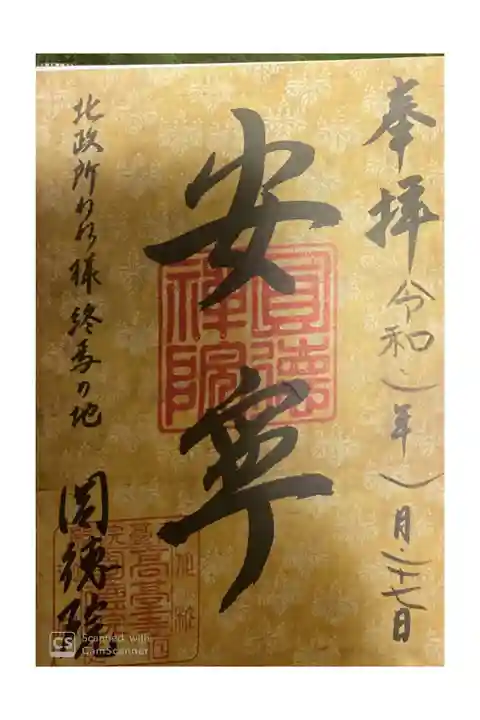 奉拝 令和 年 月 十七日
安寧
圓徳禅院
北政所ねね様終焉の地
圓徳院
高臺寺
Scanned with
CamScanner